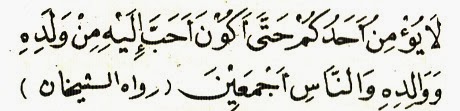 لَا يُؤْمِنُ أَحَدُكُمْ حَتَّى أَكُوْنَ أَحَبَّ إِلَيْهِ مِنْ وَلَدِهِ
وَوَالِدِهِ وَالنَّاسِ أَجْمَعِيْنَ (رواه الشيخان)